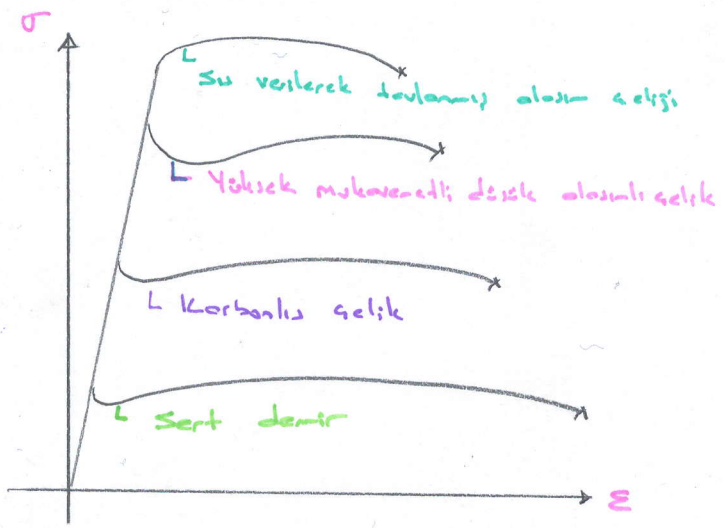 σ
Su verilerek tavlanmış alaşım çeliği
Yüksek mukavemetli düşük alaşımlı çelik
Karbonlu çelik
Sert demir
ε